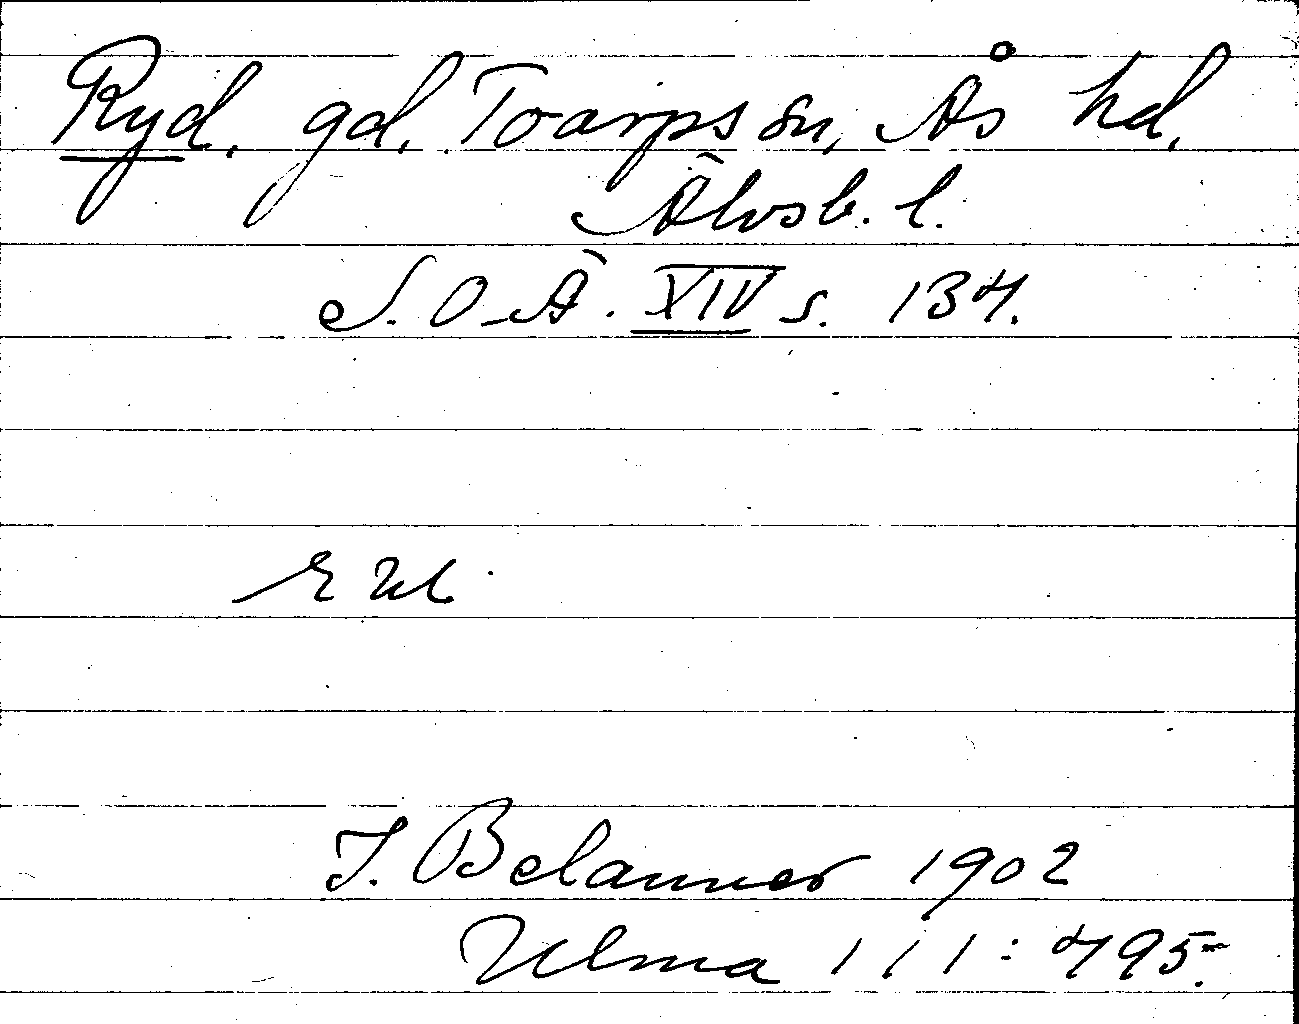 Ryd, gd, Toarps sn, Ås hd,
Älvsb. l.
S. O. Ä. XIV s. 134.
J. Belanner 1902
Ulma 111:495.